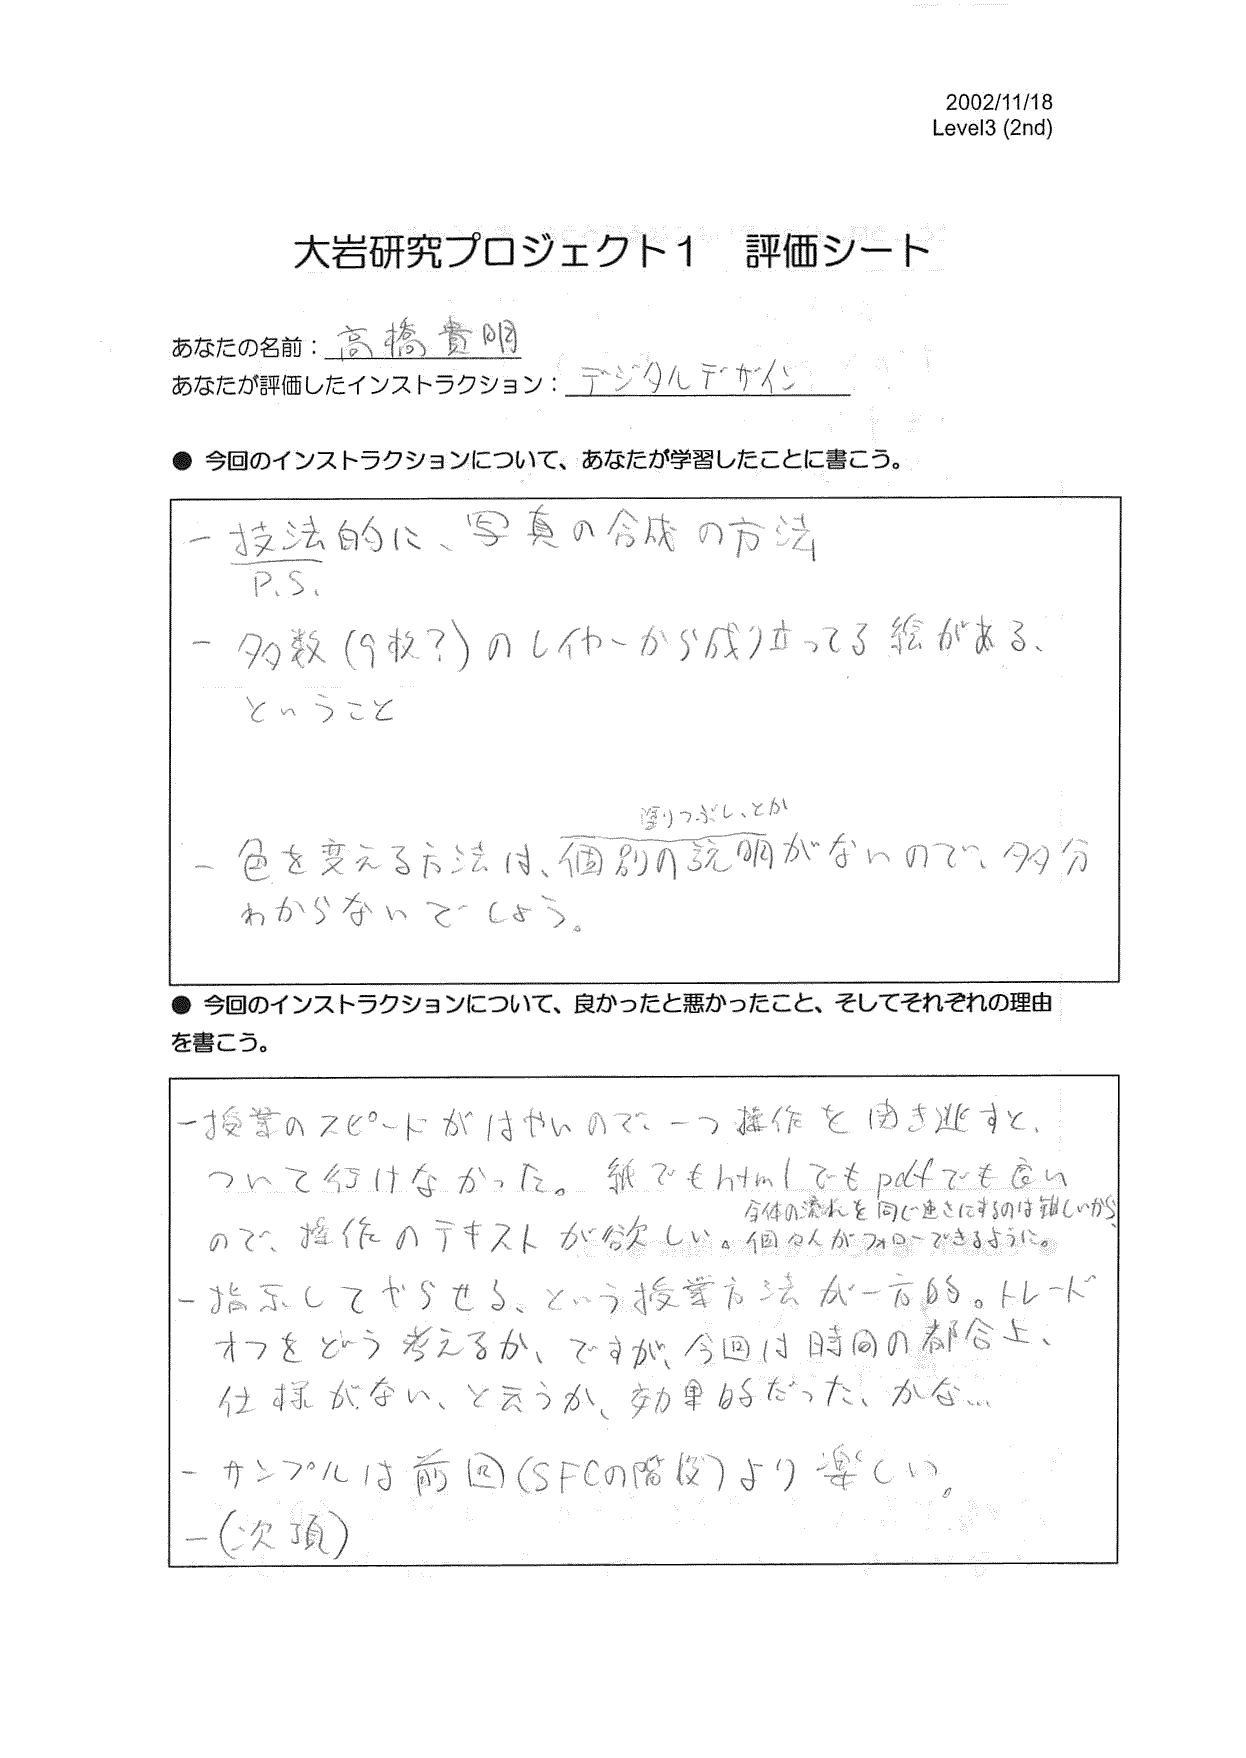 2002/11/18
Level3 (2nd)
大岩研究プロジェクト1　評価シート
あなたの名前：高橋貴明
あなたが評価したインストラクション：デジタルデザイン
● 今回のインストラクションについて、あなたが学習したことに書こう。
－ 技法的に、写真の合成の方法
P.S.
－ 多数(9枚?)のレイヤーから成り立ってる絵がある、
ということ
塗りつぶし、とか
－ 色を変える方法は、個別の説明がないので、多分
わからないでしょう。
● 今回のインストラクションについて、良かったと悪かったこと、そしてそれぞれの理由
を書こう。
－授業のスピードがはやいので、一つ操作を聞き逃すと、
ついて行けなかった。紙でもhtmlでもpdfでも良い
全体の流れを同じ速さにするのは難しいから、
ので、操作のテキストが欲しい。個々人がフォローできるように。
－指示してやらせる、という授業方法が一方的。トレード
オフをどう考えるか、ですが、今回は時間の都合上、
仕様がない、と云うか、効果的だった、かな…
－ サンプルは前回(SFCの階段)より楽しい。
－(次項)